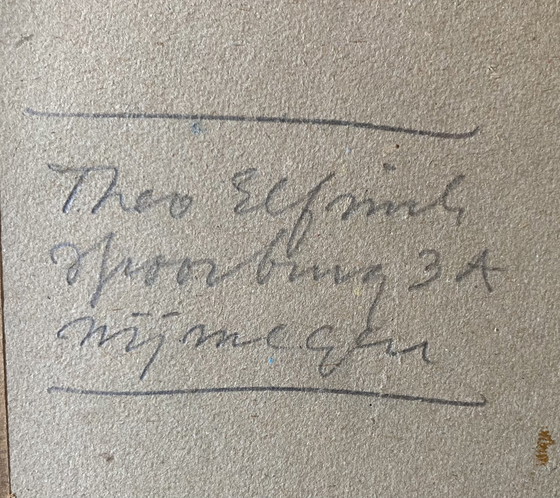 Theo Elfrink
Spoorbrug 3A
Nijmegen